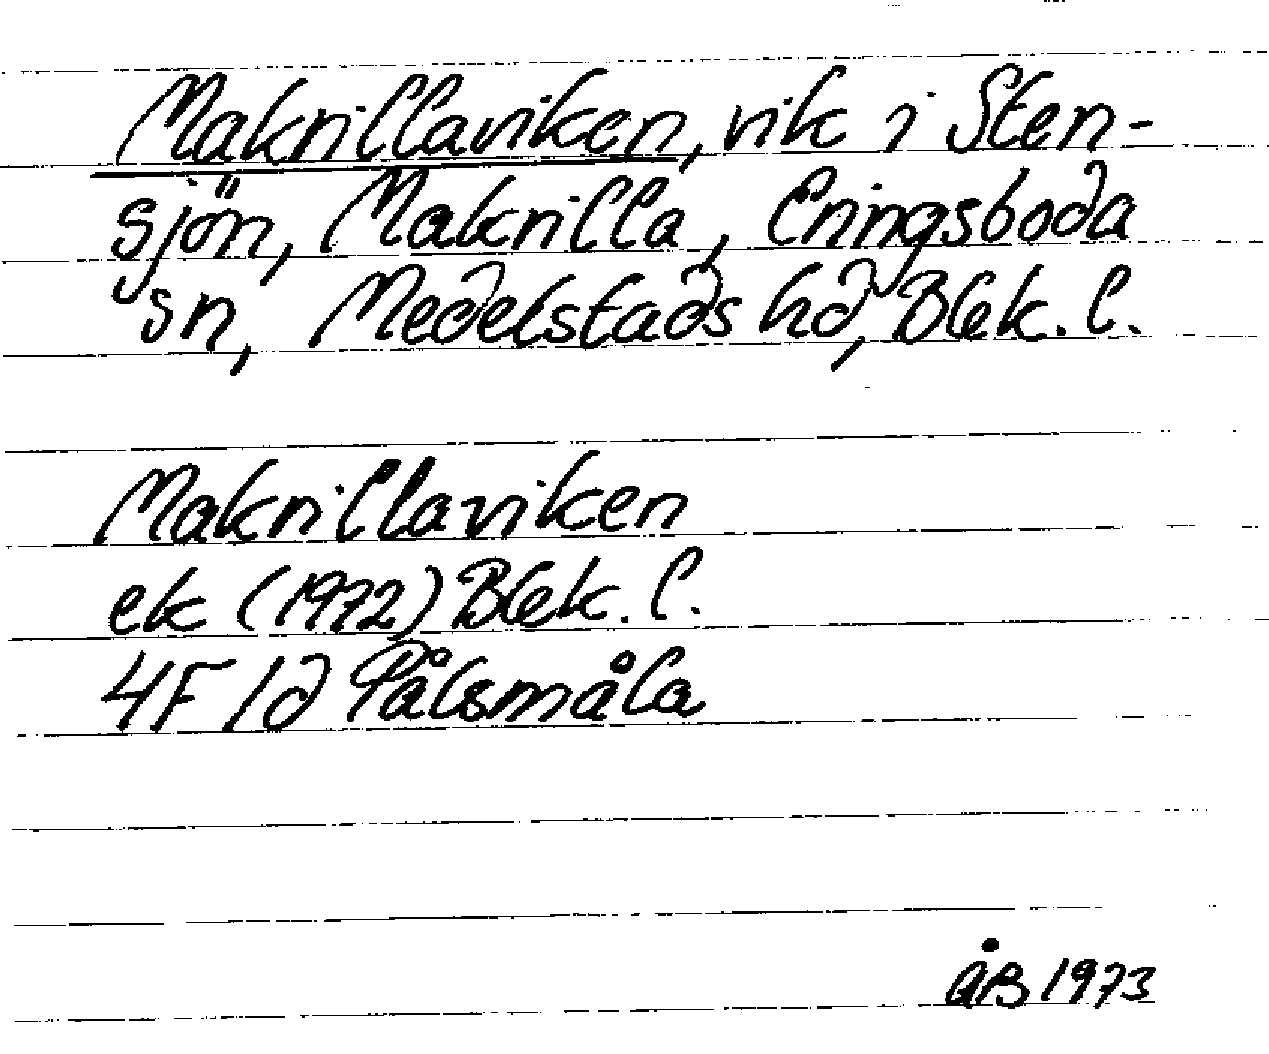 Makrillaviken, vik i Sten-
sjön, Makrilla, Eringsboda
sn, Medelstads hd, Blek. l.
Makrillaviken
ek (1972) Blek. l.
4F 1d Pålsmåla
ÅB 1973